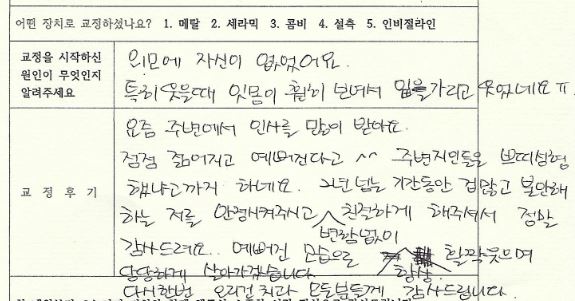 어떤 장치로 교정하셨나요? 1. 메탈 2. 세라믹 3. 콤비 4. 설측 5. 인비절라인
교정을 시작하신
원인이 무엇인지
알려주세요
외모에 자신이 없었어요.
특히 웃을때 잇몸이 훤히 보여서 입을가리고 웃었네요ㅠ.
교 정 후 기
요즘 주변에서 인사를 많이 받아요.
점점 젊어지고 예뻐진다고 ^^ 주변지인들은 쁘띠성형
했냐고까지 하네요. 2년 넘는 기간동안 겁많고 불안해
하는 저를 안정시켜주시고 변함없이 친절하게 해주셔서 정말
감사드려요.. 예뻐진 모습으로 항상 활짝웃으며
당당하게 살아가겠습니다.
다시한번 오리건치과 모두분들께 감사드립니다.